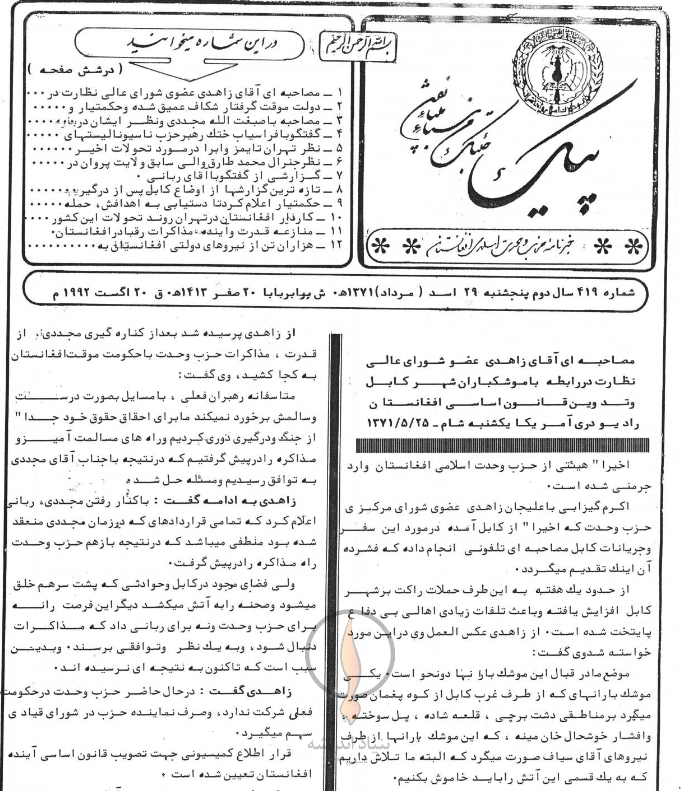 بسم الله الرحمن الرحیم
در این شماره میخوانید
( درشش صفحه )
۱ ــ مصاحبه ای آقای زاهدی عضوی شورای عالی نظارت در ۰۰۰
۲ ــ دولت موقت گرفتار شکاف عمیق شده وحکمتیار و ۰۰۰۰۰
۳ ــ مصاحبه باصبغت الله مجددی ونظر ایشان در
۴ ــ گفتگوبافراسیاب ختك رهبرحزب ناسیونالیستهای ۰۰۰۰۰
۵ ــ نظر تهران تایمز وابرا درمورد تحولات اخیر ۰۰۰۰۰
۶ ــ نظرجنرال محمد طارق والی سابق ولایت پروان در ۰۰۰۰۰
۷ ــ گزارشی از گفتگوباآقای ربانی ۰
۸ ــ تازه ترین گزارشها از اوضاع کابل پس از درگیری ۰۰۰۰۰۰
۹ ــ حکمتیار اعلام کردتا دستیابی به اهدافش، حمله ۰۰۰۰۰
۱۰ ــ کاردار افغانستان درتهران روند تحولات این کشور ۰۰۰۰
۱۱ ــ منازعه قدرت وآینده مذاکرات رقبادر افغانستان۰
۱۲ ــ هزاران تن از نیروهای دولتی افغانستان به ۰۰۰۰۰۰۰۰۰۰
پیک
خبرنامه حزب وحدت اسلامی افغانستان
شماره ۴۱۹ سال دوم پنجشنبه ۲۹ اسد ( مرداد) ۱۳۷۱ه۰ ش برابربا ۲۰ صفر ۱۴۱۳ه۰ ق ۲۰ اگست ۱۹۹۲ م
مصاحبه ای آقای زاهدی عضو شورای عالی
نظارت دررابطه باموشکباران شهر کابل
وتدوین قانون اساسی افغانستان
رادیو دری آمریکا یکشنبه شام ـ ۱۳۷۱/۵/۲۵
اخیرا" هیئتی از حزب وحدت اسلامی افغانستان وارد
جرمنی شده است۰
اکرم گیزابی باعلیجان زاهدی عضوی شورای مرکزی
حزب وحدت که اخیرا" از کابل آمده درمورد این سفر
وجریانات کابل مصاحبه ای تلفونی انجام داده که فشرده
آن اینك تقدیم میگردد ۰
از حدود یك هفته به این طرف حملات راکت برشهر
کابل افزایش یافته وباعث تلفات زیادی اهالی بی دفاع
پایتخت شده است۰ از زاهدی عکس العمل وی دراین مورد
خواسته شدوی گفت:
موضع مادر قبال این موشك بارانها دونحو است۰ یکی
موشك بارانهای که از طرف غرب کابل از کوه پغمان صورت
میگیرد برمناطقی دشت برچی ، قلعه شاده ، پل سوخته ،
وافشار خوشحال خان مینه ، که این موشك بارانها از طرف
نیروهای آقای سیاف صورت میگرد که البته ما تلاش داریم
که به یك قسمی این آتش راباید خاموش بکنیم۰
از زاهدی پرسیده شد بعداز کناره گیری مجددی، از
قدرت ، مذاکرات حزب وحدت باحکومت موقت افغانستان
به کجا کشید، وی گفت:
متاسفانه رهبران فعلی ، بامسایل بصورت درست
وسالمش برخورد نمیکند مابرای احقاق حقوق خود جدا"
از جنگ ودرگیری دوری کردیم وراه های مسالمت آمیز و
مذاکره رادرپیش گرفتیم که درنتیجه باجناب آقای مجددی
به توافق رسیدیم ومسئله حل شد ۰
زاهدی به ادامه گفت : باکنار رفتن مجددی، ربانی
اعلام کرد که تمامی قراردادهای که درزمان مجددی منعقد
شده بود منطفی میباشد که درنتیجه بازهم حزب وحدت
راه مذاکره رادرپیش گرفت۰
ولی فضای موجود درکابل وحوادثی که پشت سرهم خلق
میشود وصحنه رابه آتش میکشد دیگر این فرصت رانه
برای حزب وحدت ونه برای ربانی داد که مذاکرات
دنبال شود، وبه یك نظر وتوافقی برسند۰ وبدین
سبب است که تاکنون به نتیجه ای نرسیده اند۰
زاهدی گفت : درحال حاضر حزب وحدت درحکومت
فعلی شرکت ندارد، وصرف نماینده حزب در شورای قیادی
سهم میگیرد۰
قرار اطلاع کمیسیونی جهت تصویب قانون اساسی آینده
افغانستان تعیین شده است ۰
بنیاد اندیشه